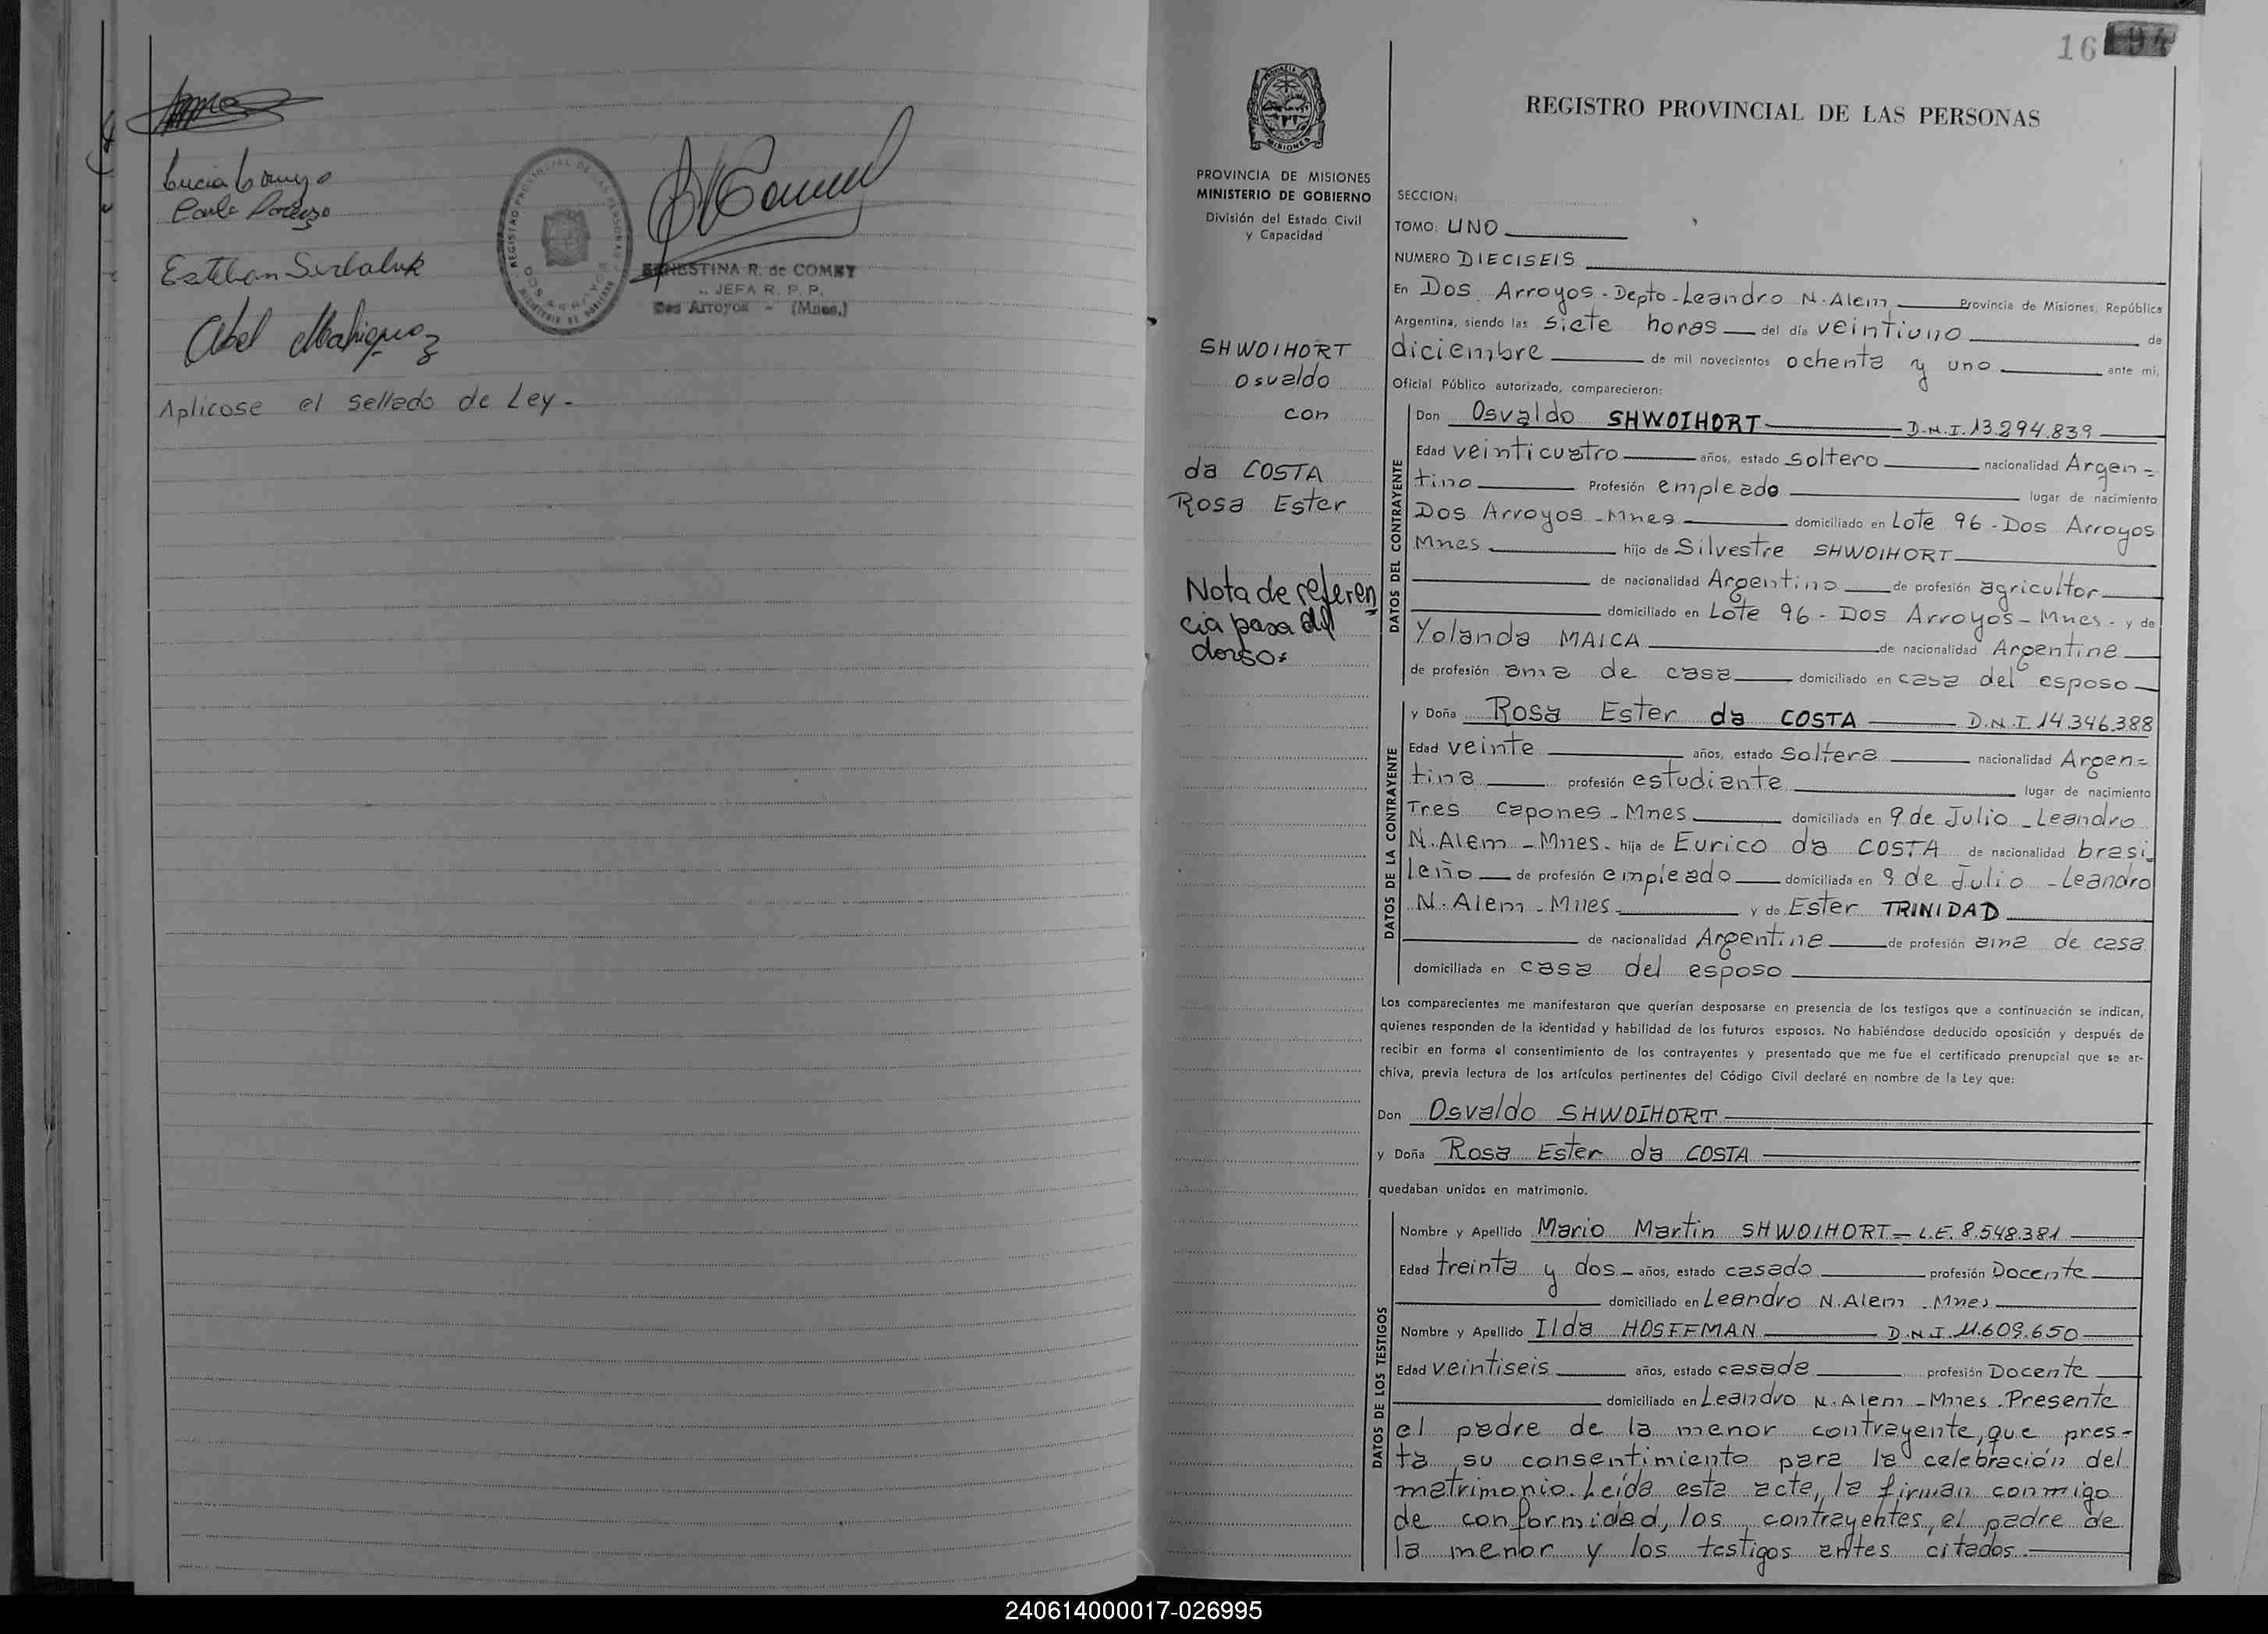 Esteban Serbaluk
Abel
Aplicose el sellado de Ley.-
REGISTRO PROVINCIAL DE LAS PERSONAS
DOS ARROYOS
ERNESTINA R. de COMEY
JEFA R. P. P.
Dos Arroyos - (Mnes.)
16
PROVINCIA DE MISIONES
MINISTERIO DE GOBIERNO
División del Estado Civil
y Capacidad
SHWOIHORT
Osvaldo
con
da COSTA
Rosa Ester
Nota de referen
cia pasa al
dorso:
REGISTRO PROVINCIAL DE LAS PERSONAS
SECCION:
TOMO: UNO
NUMERO DIECISEIS
En Dos Arroyos - Depto - Leandro N. Alem, Provincia de Misiones, República
Argentina, siendo las siete horas del día veintiuno de
diciembre de mil novecientos ochenta y uno ante mi,
Oficial Público autorizado, comparecieron:
DATOS DEL CONTRAYENTE
Don Osvaldo SHWOIHORT D.N.I. 13.294.839
Edad veinticuatro años, estado soltero nacionalidad Argen=
tino Profesión empleado lugar de nacimiento
Dos Arroyos - Mnes domiciliado en Lote 96 - Dos Arroyos
Mnes hijo de Silvestre SHWOIHORT
de nacionalidad Argentino de profesión agricultor
domiciliado en Lote 96 - Dos Arroyos - Mnes - y de
Yolanda MAICA de nacionalidad Argentina
de profesión ama de casa domiciliado en casa del esposo
DATOS DE LA CONTRAYENTE
y Doña Rosa Ester da COSTA D.N.I. 14.346.388
Edad veinte años, estado soltera nacionalidad Argen=
tina profesión estudiante lugar de nacimiento
Tres Capones - Mnes domiciliada en 9 de Julio - Leandro
N. Alem - Mnes - hija de Eurico da COSTA de nacionalidad brasi
leño de profesión empleado domiciliada en 9 de Julio - Leandro
N. Alem - Mnes y de Ester TRINIDAD
de nacionalidad Argentina de profesión ama de casa
domiciliada en casa del esposo
Los comparecientes me manifestaron que querían desposarse en presencia de los testigos que a continuación se indican,
quienes responden de la identidad y habilidad de los futuros esposos. No habiéndose deducido oposición y después de
recibir en forma el consentimiento de los contrayentes y presentado que me fue el certificado prenupcial que se ar-
chiva, previa lectura de los artículos pertinentes del Código Civil declaré en nombre de la Ley que:
Don Osvaldo SHWOIHORT
y Doña Rosa Ester da COSTA
quedaban unidos en matrimonio.
DATOS DE LOS TESTIGOS
Nombre y Apellido Mario Martin SHWOIHORT - L.E. 8.548.381
Edad treinta y dos - años, estado casado profesión Docente
domiciliado en Leandro N. Alem - Mnes
Nombre y Apellido Ilda HOSFFMAN D.N.I. 11.609.650
Edad veintiseis años, estado casada profesión Docente
domiciliado en Leandro N. Alem - Mnes - Presente
el padre de la menor contrayente, que pres-
ta su consentimiento para la celebración del
matrimonio. Leída esta acta, la firman conmigo
de conformidad, los contrayentes, el padre de
la menor y los testigos antes citados.-
240614000017-026995